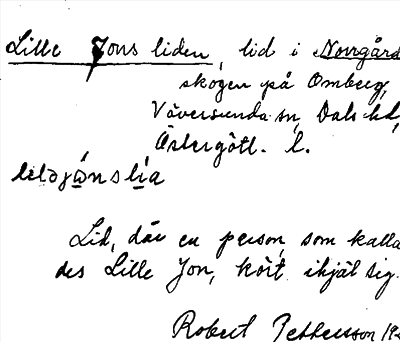 Lille Jons liden, lid i Norrgård
skogen på Omberg,
Väversunda sn, Dals hd,
Östergötl. l.
Lid, där en person, som kalla
des Lille Jon, kört ihjäl sig.
Robert Pettersson 19